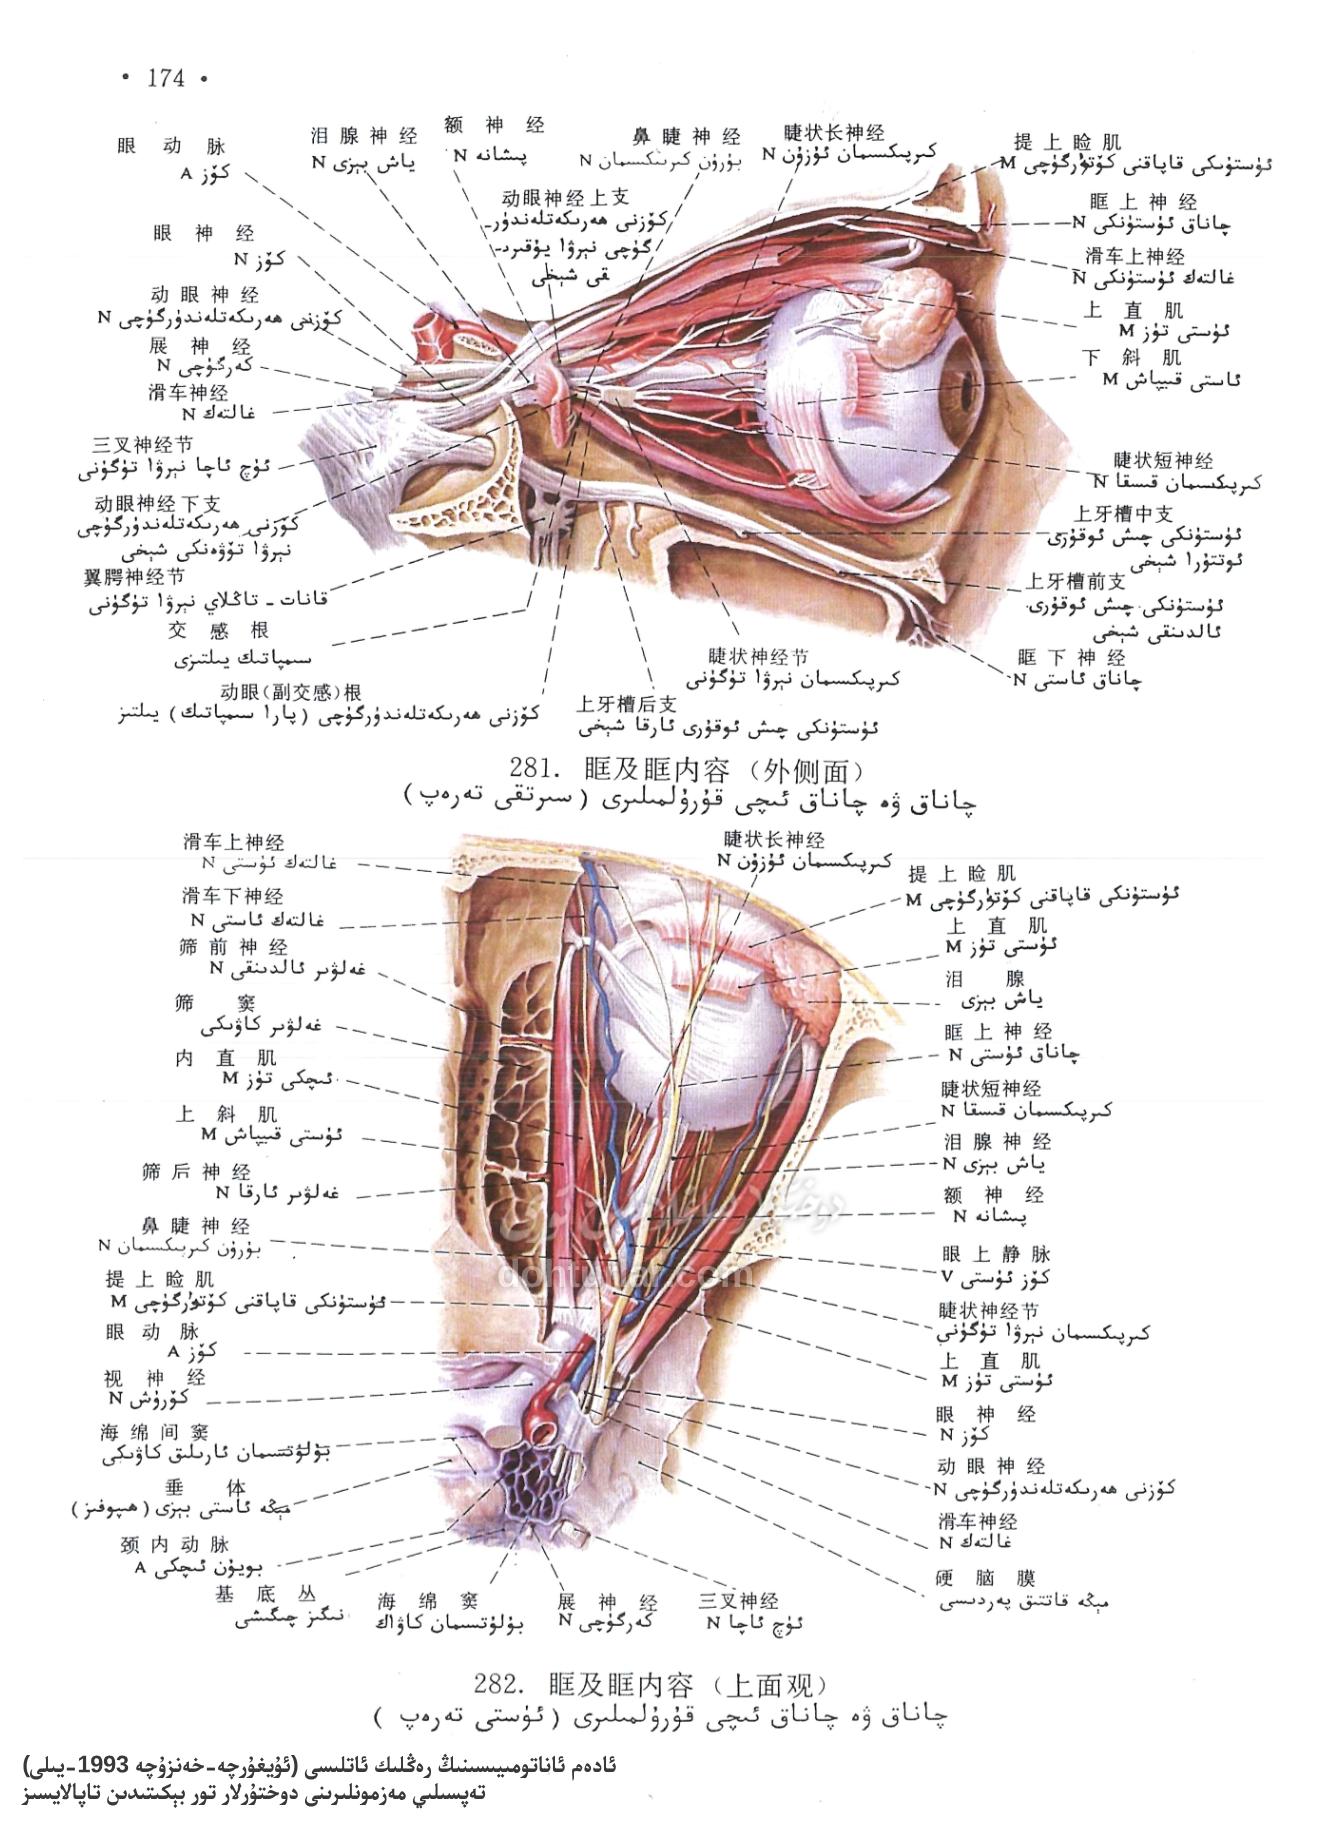 • 174 •
眼动脉
كۆز A
泪腺神经
ياش بېزى N
额神经
پىشانە N
鼻睫神经
بۇرۇن كىرپىكسىمان N
睫状长神经
كىرپىكسىمان ئۇزۇن N
提上睑肌
ئۈستۈنكى قاپاقنى كۆتۈرگۈچى M
动眼神经上支
كۆزنى ھەرىكەتلەندۈر-
گۈچى نېرۋا يۇقىرد-
قى شېخى
眶上神经
چاناق ئۈستۈنكى N
眼神经
كۆز N
滑车上神经
غالتەك ئۈستۈنكى N
动眼神经
كۆزنى ھەرىكەتلەندۈرگۈچى N
上直肌
ئۈستى تۈز M
展神经
كەرگۈچى N
下斜肌
ئاستى قىيپاش M
滑车神经
غالتەك N
三叉神经节
ئۈچ ئاچا نېرۋا تۈگۈنى
睫状短神经
كىرپىكسىمان قىسقا N
动眼神经下支
كۆزنى ھەرىكەتلەندۈرگۈچى
نېرۋا تۆۋەنكى شېخى
上牙槽中支
ئۈستۈنكى چىش ئوقۇرى
ئوتتۇرا شېخى
翼腭神经节
قانات - تاڭلاي نېرۋا تۈگۈنى
上牙槽前支
ئۈستۈنكى چىش ئوقۇرى
ئالدىنقى شېخى
交感根
سىمپاتىك يىلتىزى
睫状神经节
كىرپىكسىمان نېرۋا تۈگۈنى
眶下神经
چاناق ئاستى N
动眼(副交感)根
كۆزنى ھەرىكەتلەندۈرگۈچى (پارا سىمپاتىك) يىلتىز
上牙槽后支
ئۈستۈنكى چىش ئوقۇرى ئارقا شېخى
281. 眶及眶内容（外侧面）
چاناق ۋە چاناق ئىچى قۇرۇلمىلىرى (سىرتقى تەرەپ)
滑车上神经
غالتەك ئۈستى N
睫状长神经
كىرپىكسىمان ئۇزۇن N
提上睑肌
ئۈستۈنكى قاپاقنى كۆتۈرگۈچى M
滑车下神经
غالتەك ئاستى N
上直肌
ئۈستى تۈز M
筛前神经
غەلۋىر ئالدىنقى N
泪腺
ياش بېزى
筛窦
غەلۋىر كاۋىكى
眶上神经
چاناق ئۈستى N
内直肌
ئىچكى تۈز M
睫状短神经
كىرپىكسىمان قىسقا N
上斜肌
ئۈستى قىيپاش M
泪腺神经
ياش بېزى N
筛后神经
غەلۋىر ئارقا N
额神经
پىشانە N
鼻睫神经
بۇرۇن كىرپىكسىمان N
眼上静脉
كۆز ئۈستى V
提上睑肌
ئۈستۈنكى قاپاقنى كۆتۈرگۈچى M
睫状神经节
كىرپىكسىمان نېرۋا تۈگۈنى
眼动脉
كۆز A
上直肌
ئۈستى تۈز M
视神经
كۆرۈش N
眼神经
كۆز N
海绵间窦
بۇلۇتسىمان ئارىلىق كاۋىكى
动眼神经
كۆزنى ھەرىكەتلەندۈرگۈچى N
垂体
مېڭە ئاستى بېزى (ھىپوفىز)
滑车神经
غالتەك N
颈内动脉
بويۇن ئىچكى A
硬脑膜
مېڭە قاتتىق پەردىسى
基底丛
نىگىز چىگىشى
海绵窦
بۇلۇتسىمان كاۋاك
展神经
كەرگۈچى N
三叉神经
ئۈچ ئاچا N
dohturlar.com
282. 眶及眶内容（上面观）
چاناق ۋە چاناق ئىچى قۇرۇلمىلىرى (ئۈستى تەرەپ)
ئادەم ئاناتومىيىسىنىڭ رەڭلىك ئاتلىسى (ئۇيغۇرچە-خەنزۇچە 1993-يىلى)
تەپسىلىي مەزمونلىرىنى دوختۇرلار تور بېكىتىدىن تاپالايسىز